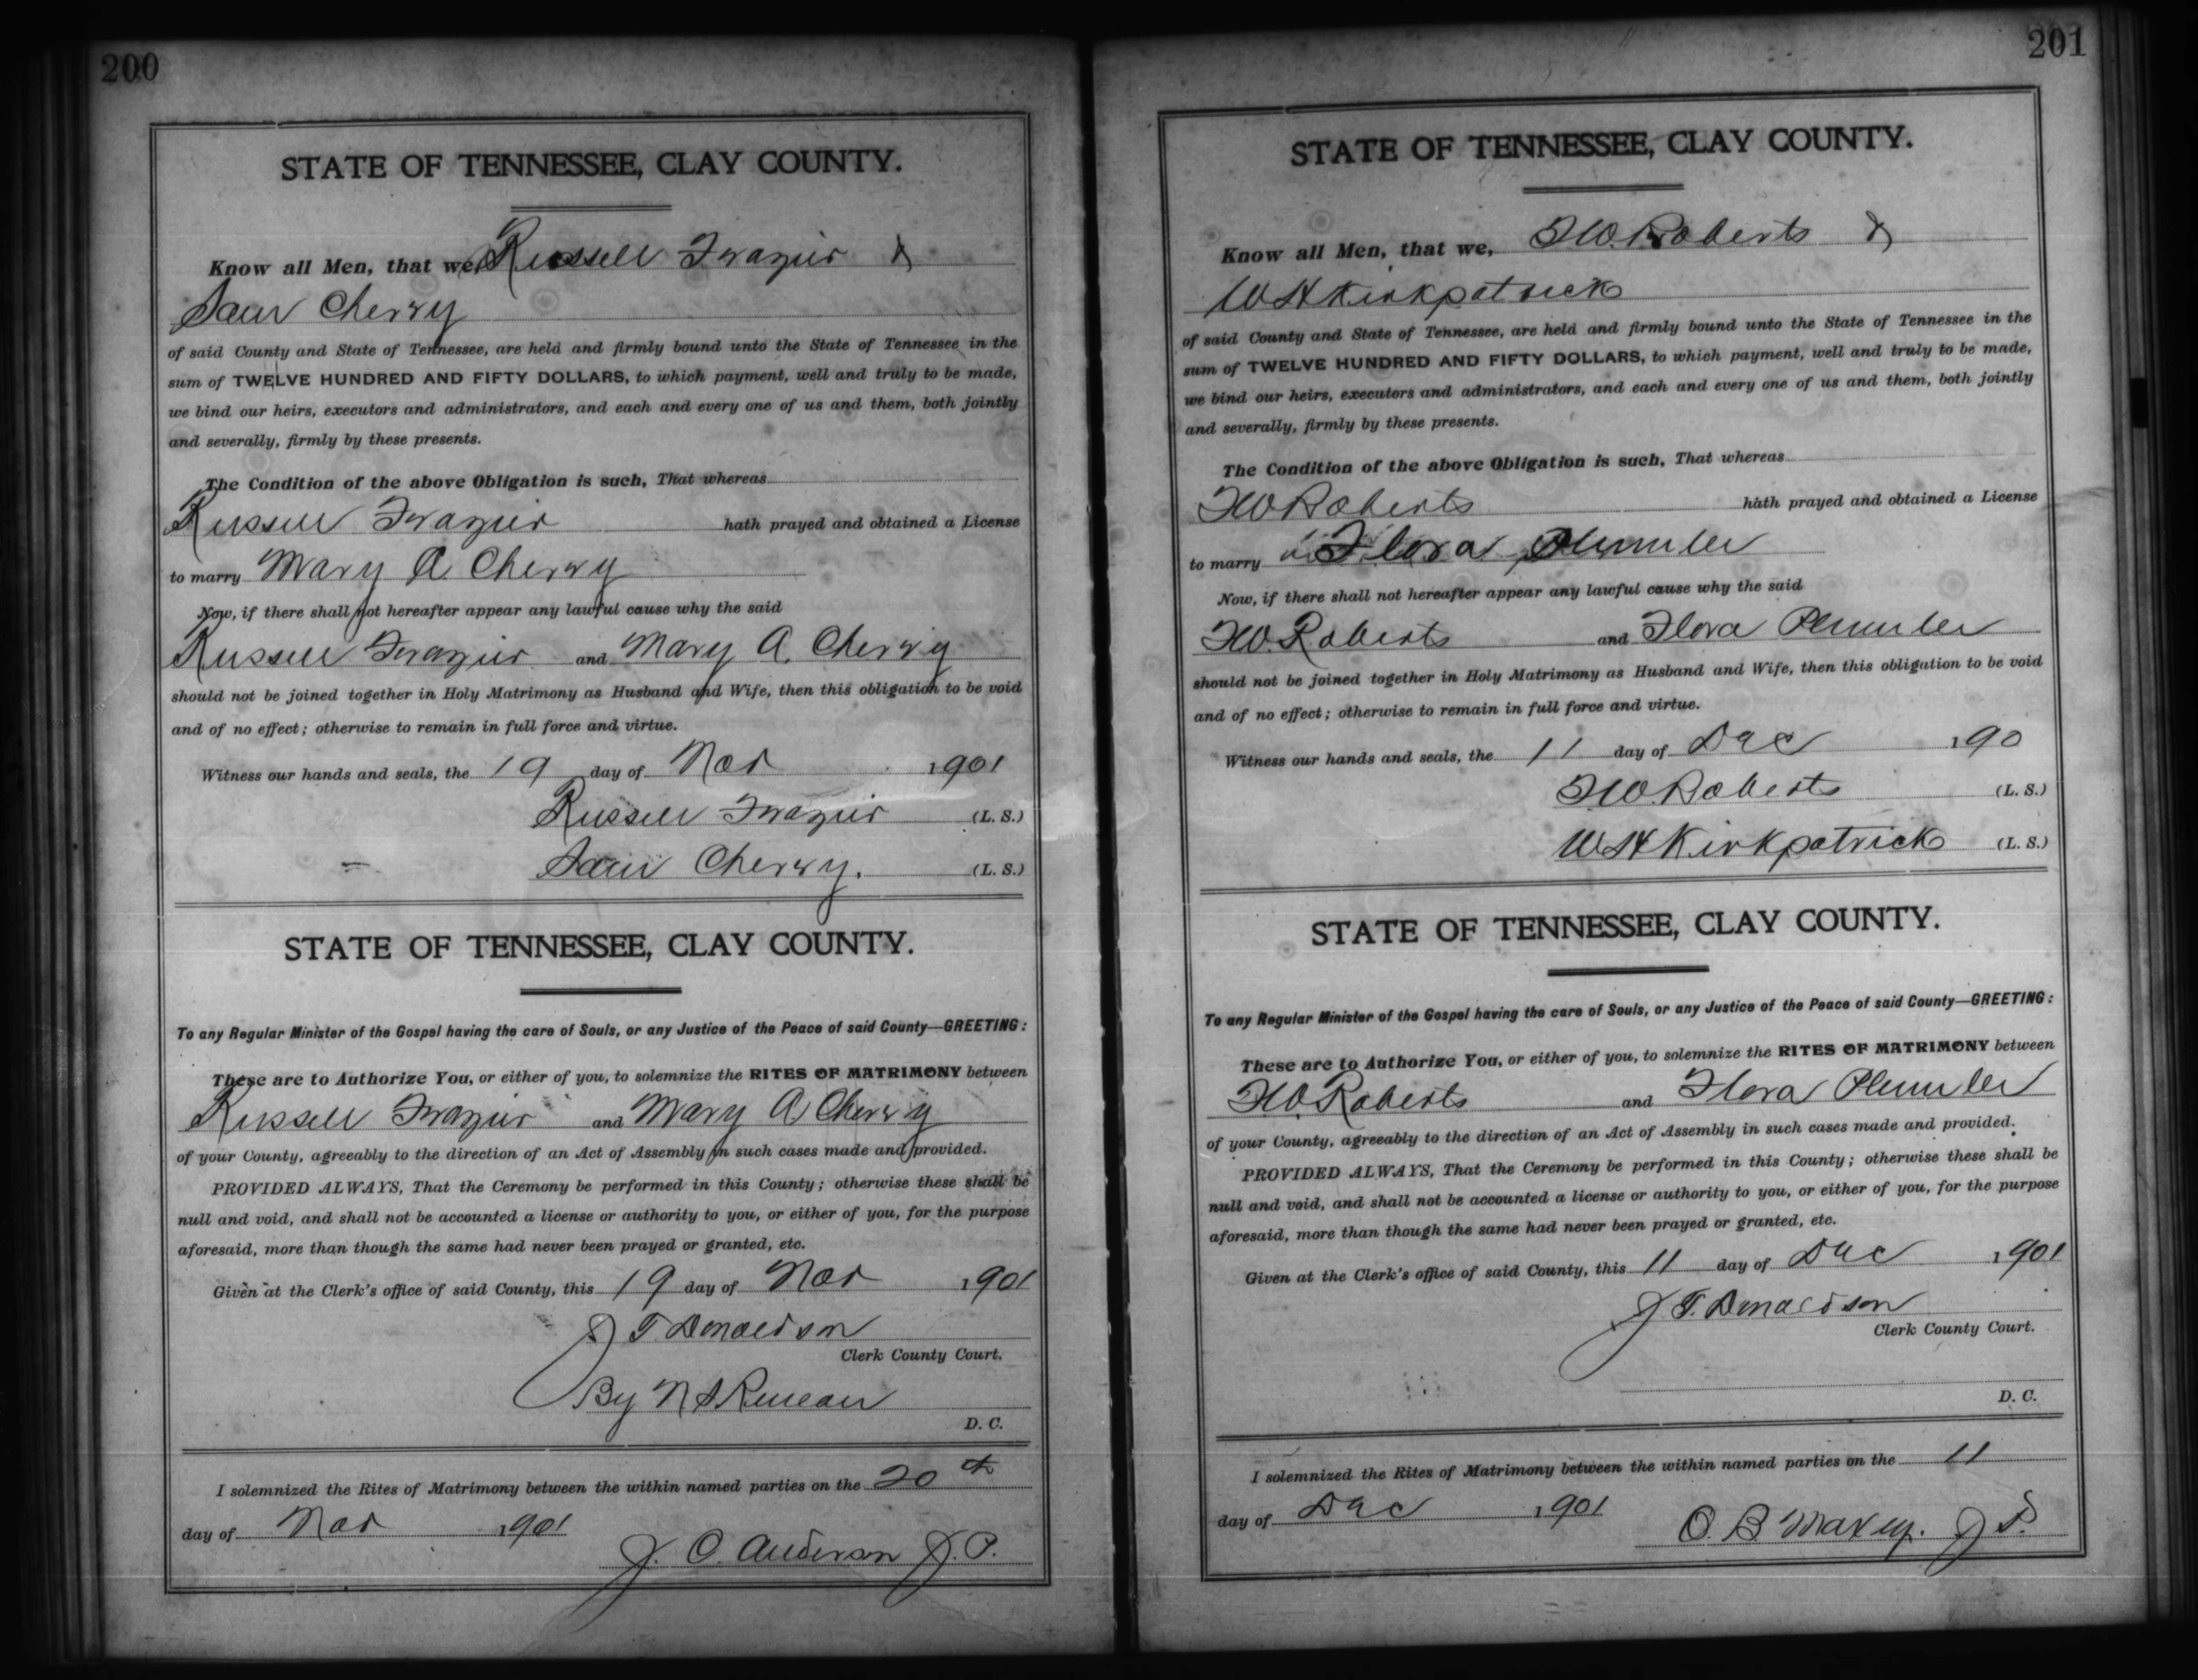 200
STATE OF TENNESSEE, CLAY COUNTY.
Know all Men, that we, Russell Frazier &
Sam Cherry
of said County and State of Tennessee, are held and firmly bound unto the State of Tennessee in the
sum of TWELVE HUNDRED AND FIFTY DOLLARS, to which payment, well and truly to be made,
we bind our heirs, executors and administrators, and each and every one of us and them, both jointly
and severally, firmly by these presents.
The Condition of the above Obligation is such, That whereas
Russell Frazier hath prayed and obtained a License
to marry Mary A Cherry
Now, if there shall not hereafter appear any lawful cause why the said
Russell Frazier and Mary A. Cherry
should not be joined together in Holy Matrimony as Husband and Wife, then this obligation to be void
and of no effect; otherwise to remain in full force and virtue.
Witness our hands and seals, the 19 day of Nov 1901
Russell Frazier (L. S.)
Sam Cherry. (L. S.)
STATE OF TENNESSEE, CLAY COUNTY.
To any Regular Minister of the Gospel having the care of Souls, or any Justice of the Peace of said County—GREETING:
These are to Authorize You, or either of you, to solemnize the RITES OF MATRIMONY between
Russell Frazier and Mary A Cherry
of your County, agreeably to the direction of an Act of Assembly in such cases made and provided.
PROVIDED ALWAYS, That the Ceremony be performed in this County; otherwise these shall be
null and void, and shall not be accounted a license or authority to you, or either of you, for the purpose
aforesaid, more than though the same had never been prayed or granted, etc.
Given at the Clerk's office of said County, this 19 day of Nov 1901
J T. Donaldson
Clerk County Court.
By N S Reneau
D. C.
I solemnized the Rites of Matrimony between the within named parties on the 20th
day of Nov 1901
J. C. Anderson J. P.
201
STATE OF TENNESSEE, CLAY COUNTY.
Know all Men, that we, Roberts &
W H Kirkpatrick
of said County and State of Tennessee, are held and firmly bound unto the State of Tennessee in the
sum of TWELVE HUNDRED AND FIFTY DOLLARS, to which payment, well and truly to be made,
we bind our heirs, executors and administrators, and each and every one of us and them, both jointly
and severally, firmly by these presents.
The Condition of the above Obligation is such, That whereas
Roberts hath prayed and obtained a License
to marry Flora
Now, if there shall not hereafter appear any lawful cause why the said
Roberts and Flora
should not be joined together in Holy Matrimony as Husband and Wife, then this obligation to be void
and of no effect; otherwise to remain in full force and virtue.
Witness our hands and seals, the 11 day of Dec 190
Roberts (L. S.)
W H Kirkpatrick (L. S.)
STATE OF TENNESSEE, CLAY COUNTY.
To any Regular Minister of the Gospel having the care of Souls, or any Justice of the Peace of said County—GREETING:
These are to Authorize You, or either of you, to solemnize the RITES OF MATRIMONY between
Roberts and Flora
of your County, agreeably to the direction of an Act of Assembly in such cases made and provided.
PROVIDED ALWAYS, That the Ceremony be performed in this County; otherwise these shall be
null and void, and shall not be accounted a license or authority to you, or either of you, for the purpose
aforesaid, more than though the same had never been prayed or granted, etc.
Given at the Clerk's office of said County, this 11 day of Dec 1901
J T. Donaldson
Clerk County Court.
D. C.
I solemnized the Rites of Matrimony between the within named parties on the 11
day of Dec 1901
O. B Maxey. J P.